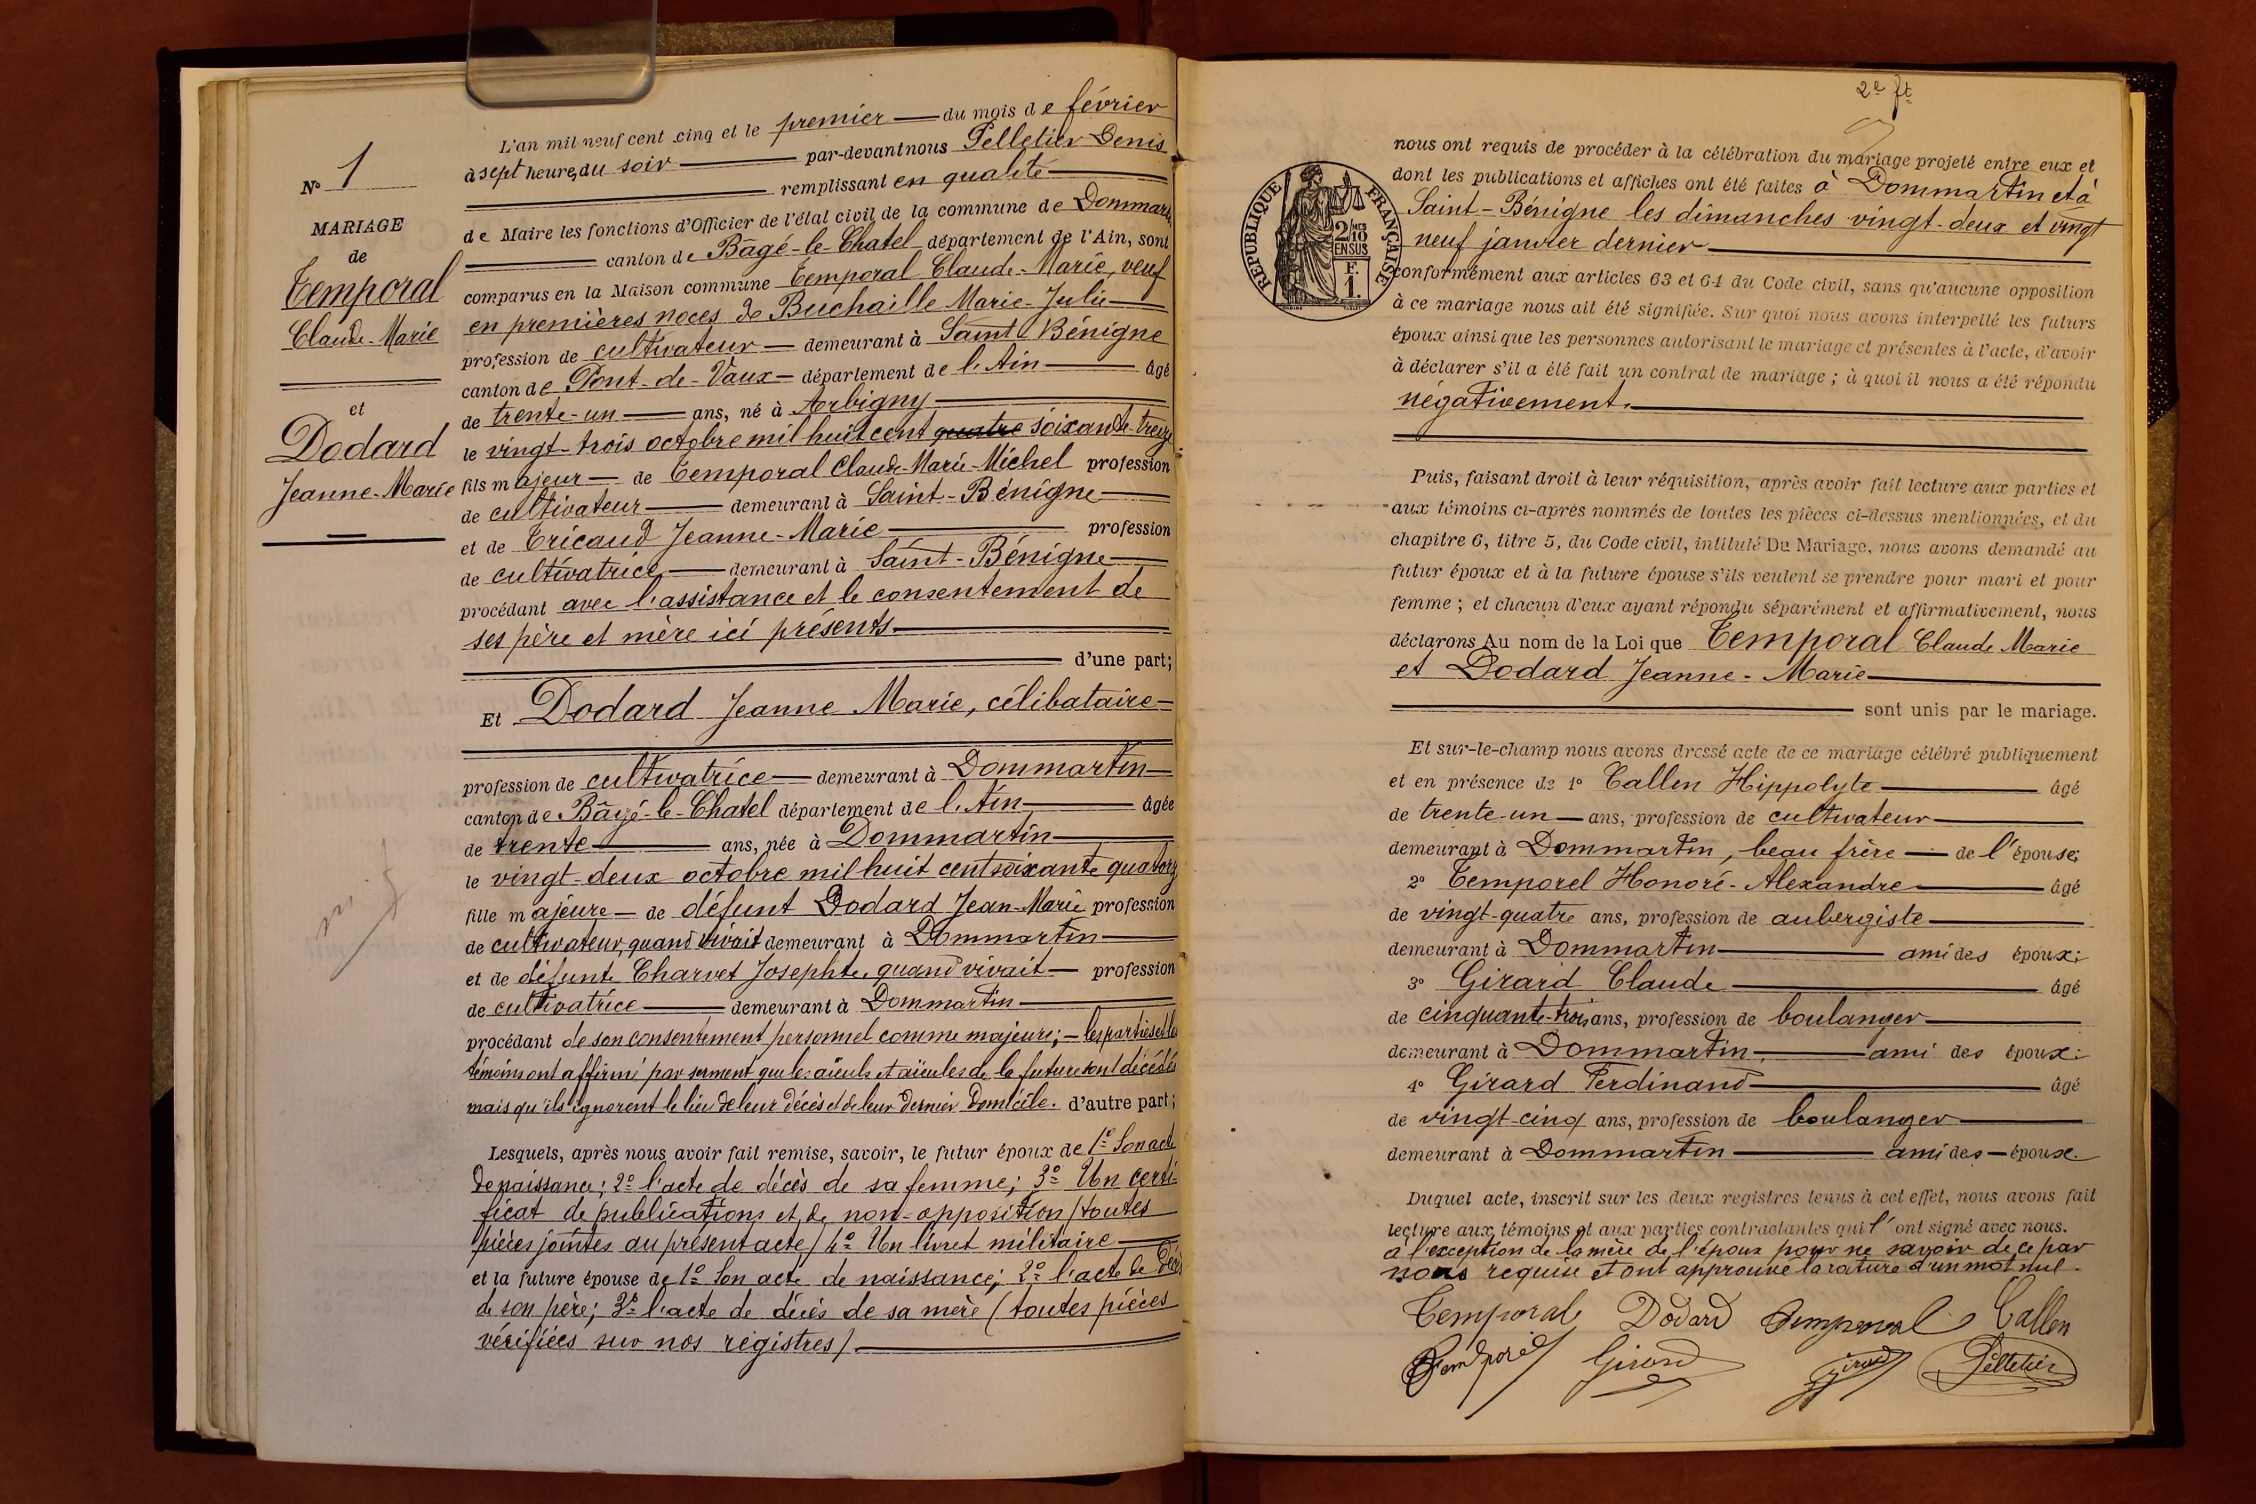 N° 1
MARIAGE
de
Temporal
Claude-Marie
et
Dodard
Jeanne-Marie
L'an mil neuf cent cinq et le premier du mois de février
à sept heures du soir par-devant nous Pelletier Denis
remplissant en qualité
de Maire les fonctions d'Officier de l'état civil de la commune de Dommartin
canton de Bâgé-le-Chatel département de l'Ain, sont
comparus en la Maison commune Temporal Claude-Marie, veuf
en premières noces de Buchaille Marie-Julie
profession de cultivateur demeurant à Saint-Bénigne
canton de Pont-de-Vaux département de l'Ain âgé
de trente-un ans, né à Arbigny
le vingt-trois octobre mil huit cent quatre soixante-treize
fils majeur de Temporal Claude-Marie-Michel profession
de cultivateur demeurant à Saint-Bénigne
et de Tricaud Jeanne-Marie profession
de cultivatrice demeurant à Saint-Bénigne
procédant avec l'assistance et le consentement de
ses père et mère ici présents
d'une part;
Et Dodard Jeanne Marie, célibataire
profession de cultivatrice demeurant à Dommartin
canton de Bâgé-le-Chatel département de l'Ain âgée
de trente ans, née à Dommartin
le vingt-deux octobre mil huit cent soixante quatorz
fille majeure de défunt Dodard Jean-Marie profession
de cultivateur, quand vivait demeurant à Dommartin
et de défunte Charvet Josephte quand vivait profession
de cultivatrice demeurant à Dommartin
procédant de son consentement personnel comme majeure; - les parties et les
témoins ont affirmé par serment que les aïeuls et aïeules de la future sont décédés
mais qu'ils ignorent le lieu de leur décès et de leur dernier domicile. d'autre part;
Lesquels, après nous avoir fait remise, savoir, le futur époux de 1° Son acte
de naissance; 2° l'acte de décès de sa femme; 3° Un certi-
ficat de publications et de non-opposition (toutes
pièces jointes au présent acte) 4° Un livret militaire
et la future épouse de 1° Son acte de naissance; 2° l'acte de décès
de son père; 3° l'acte de décès de sa mère (toutes pièces
vérifiées sur nos registres).
2e ft
RÉPUBLIQUE FRANÇAISE
2/10
EN SUS
F.
1.
nous ont requis de procéder à la célébration du mariage projeté entre eux et
dont les publications et affiches ont été faites à Dommartin et à
Saint-Bénigne les dimanches vingt-deux et vingt
neuf janvier dernier
conformément aux articles 63 et 64 du Code civil, sans qu'aucune opposition
à ce mariage nous ait été signifiée. Sur quoi nous avons interpellé les futurs
époux ainsi que les personnes autorisant le mariage et présentes à l'acte, d'avoir
à déclarer s'il a été fait un contrat de mariage; à quoi il nous a été répondu
négativement.
Puis, faisant droit à leur réquisition, après avoir fait lecture aux parties et
aux témoins ci-après nommés de toutes les pièces ci-dessus mentionnées, et du
chapitre 6, titre 5, du Code civil, intitulé Du Mariage, nous avons demandé au
futur époux et à la future épouse s'ils veulent se prendre pour mari et pour
femme; et chacun d'eux ayant répondu séparément et affirmativement, nous
déclarons Au nom de la Loi que Temporal Claude Marie
et Dodard Jeanne-Marie
sont unis par le mariage.
Et sur-le-champ nous avons dressé acte de ce mariage célébré publiquement
et en présence de 1° Tallen Hippolyte âgé
de trente-un ans, profession de cultivateur
demeurant à Dommartin, beau frère de l'épouse;
2° Temporel Honoré-Alexandre âgé
de vingt-quatre ans, profession de aubergiste
demeurant à Dommartin ami des époux;
3° Girard Claude âgé
de cinquante-trois ans, profession de boulanger
demeurant à Dommartin, ami des époux;
4° Girard Ferdinand âgé
de vingt-cinq ans, profession de boulanger
demeurant à Dommartin ami des époux.
Duquel acte, inscrit sur les deux registres tenus à cet effet, nous avons fait
lecture aux témoins et aux parties contractantes qui l'ont signé avec nous.
à l'exception de la mère de l'époux pour ne savoir de ce par
nous requise et ont approuvé la rature d'un mot nul.
Temporal Dodard Temporal Tallen
Temporel Girard Girard Pelletier